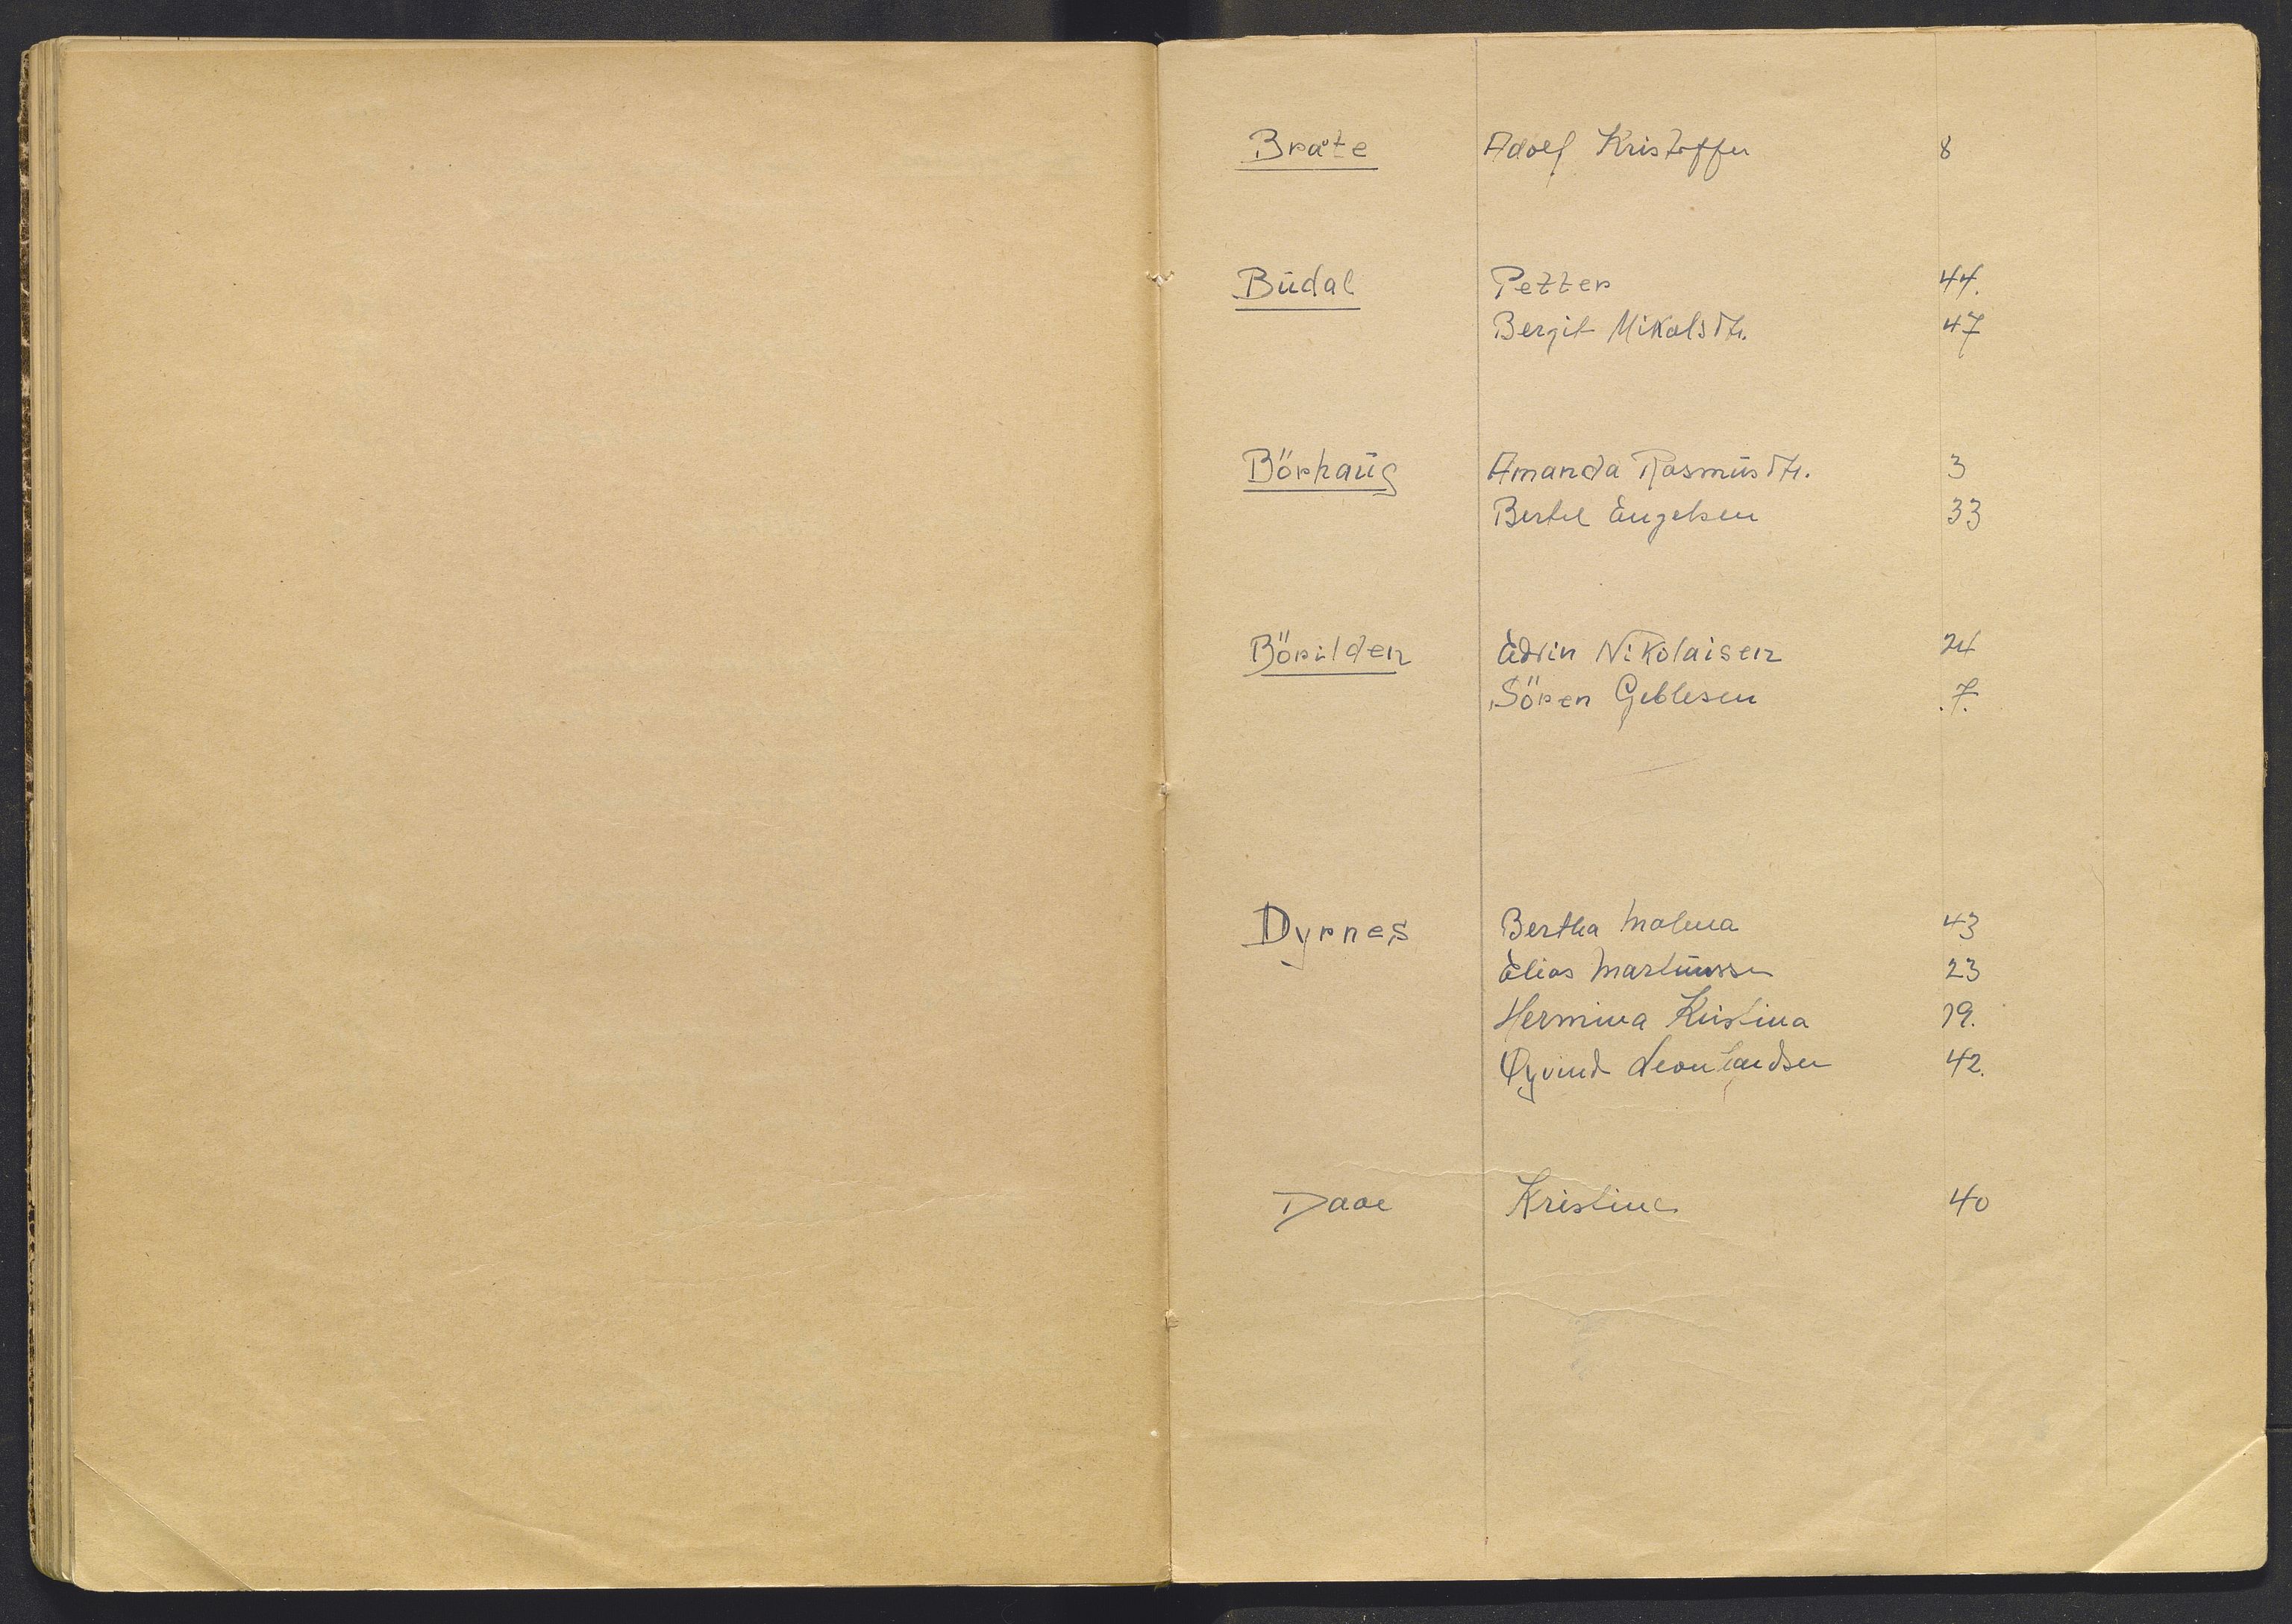 Bråte Adolf Kristoffer 8
Büdal Petter 44.
Bergit Mikalsdtr. 47
Börhaüg Amanda Rasmüsdtr. 3
Bertel Engelsen 33
Börilden Edvin Nikolaisen 24
Sören Geblesen 7.
Dyrnes Bertha Malena 43
Elias Martinüssen 23
Hermina Kristina 19.
Øyvind Leonhardsen 42.
Daae Kristine 40